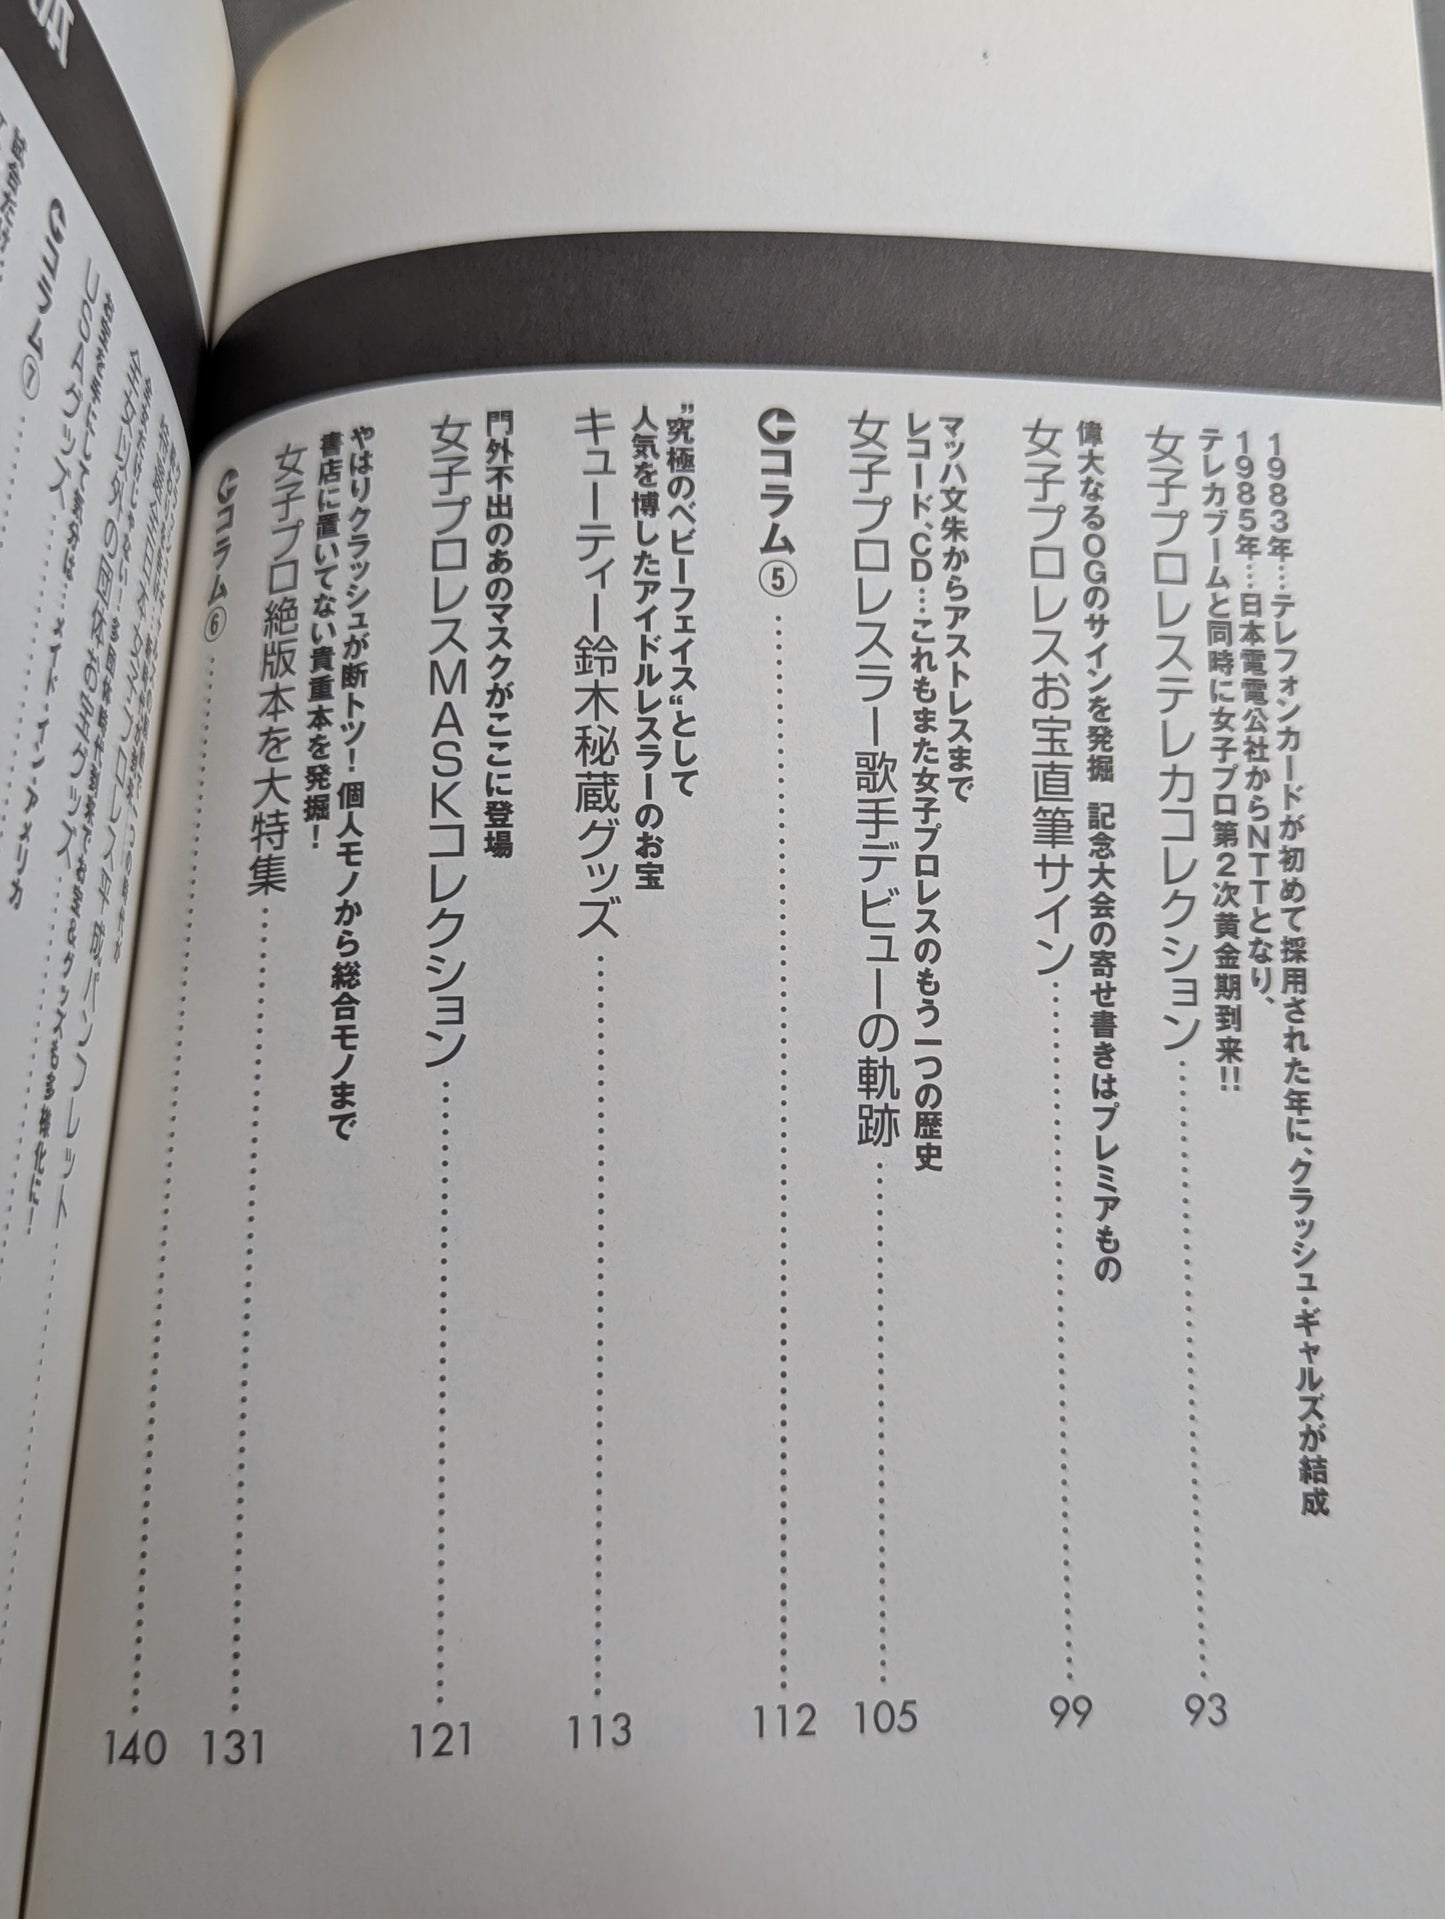 1983年…テレフォンカードが初めて採用された年に、クラッシュ・ギャルズが結成
1985年…日本電電公社からNTTとなり、
テレカブームと同時に女子プロ第2次黄金期到来!!
女子プロレステレカコレクション 93
偉大なるOGのサインを発掘 記念大会の寄せ書きはプレミアもの
女子プロレスお宝直筆サイン 99
マッハ文朱からアストレスまで
レコード、CD…これもまた女子プロレスのもう一つの歴史
女子プロレスラー歌手デビューの軌跡 105
コラム⑤ 112
"究極のベビーフェイス"として
人気を博したアイドルレスラーのお宝
キューティー鈴木秘蔵グッズ 113
門外不出のあのマスクがここに登場
女子プロレスMASKコレクション 121
やはりクラッシュが断トツ！個人モノから総合モノまで
書店に置いてない貴重本を発掘！
女子プロ絶版本を大特集 131
コラム⑥ 140
コラム①
USAグッズ
メイド・イン・アメリカ